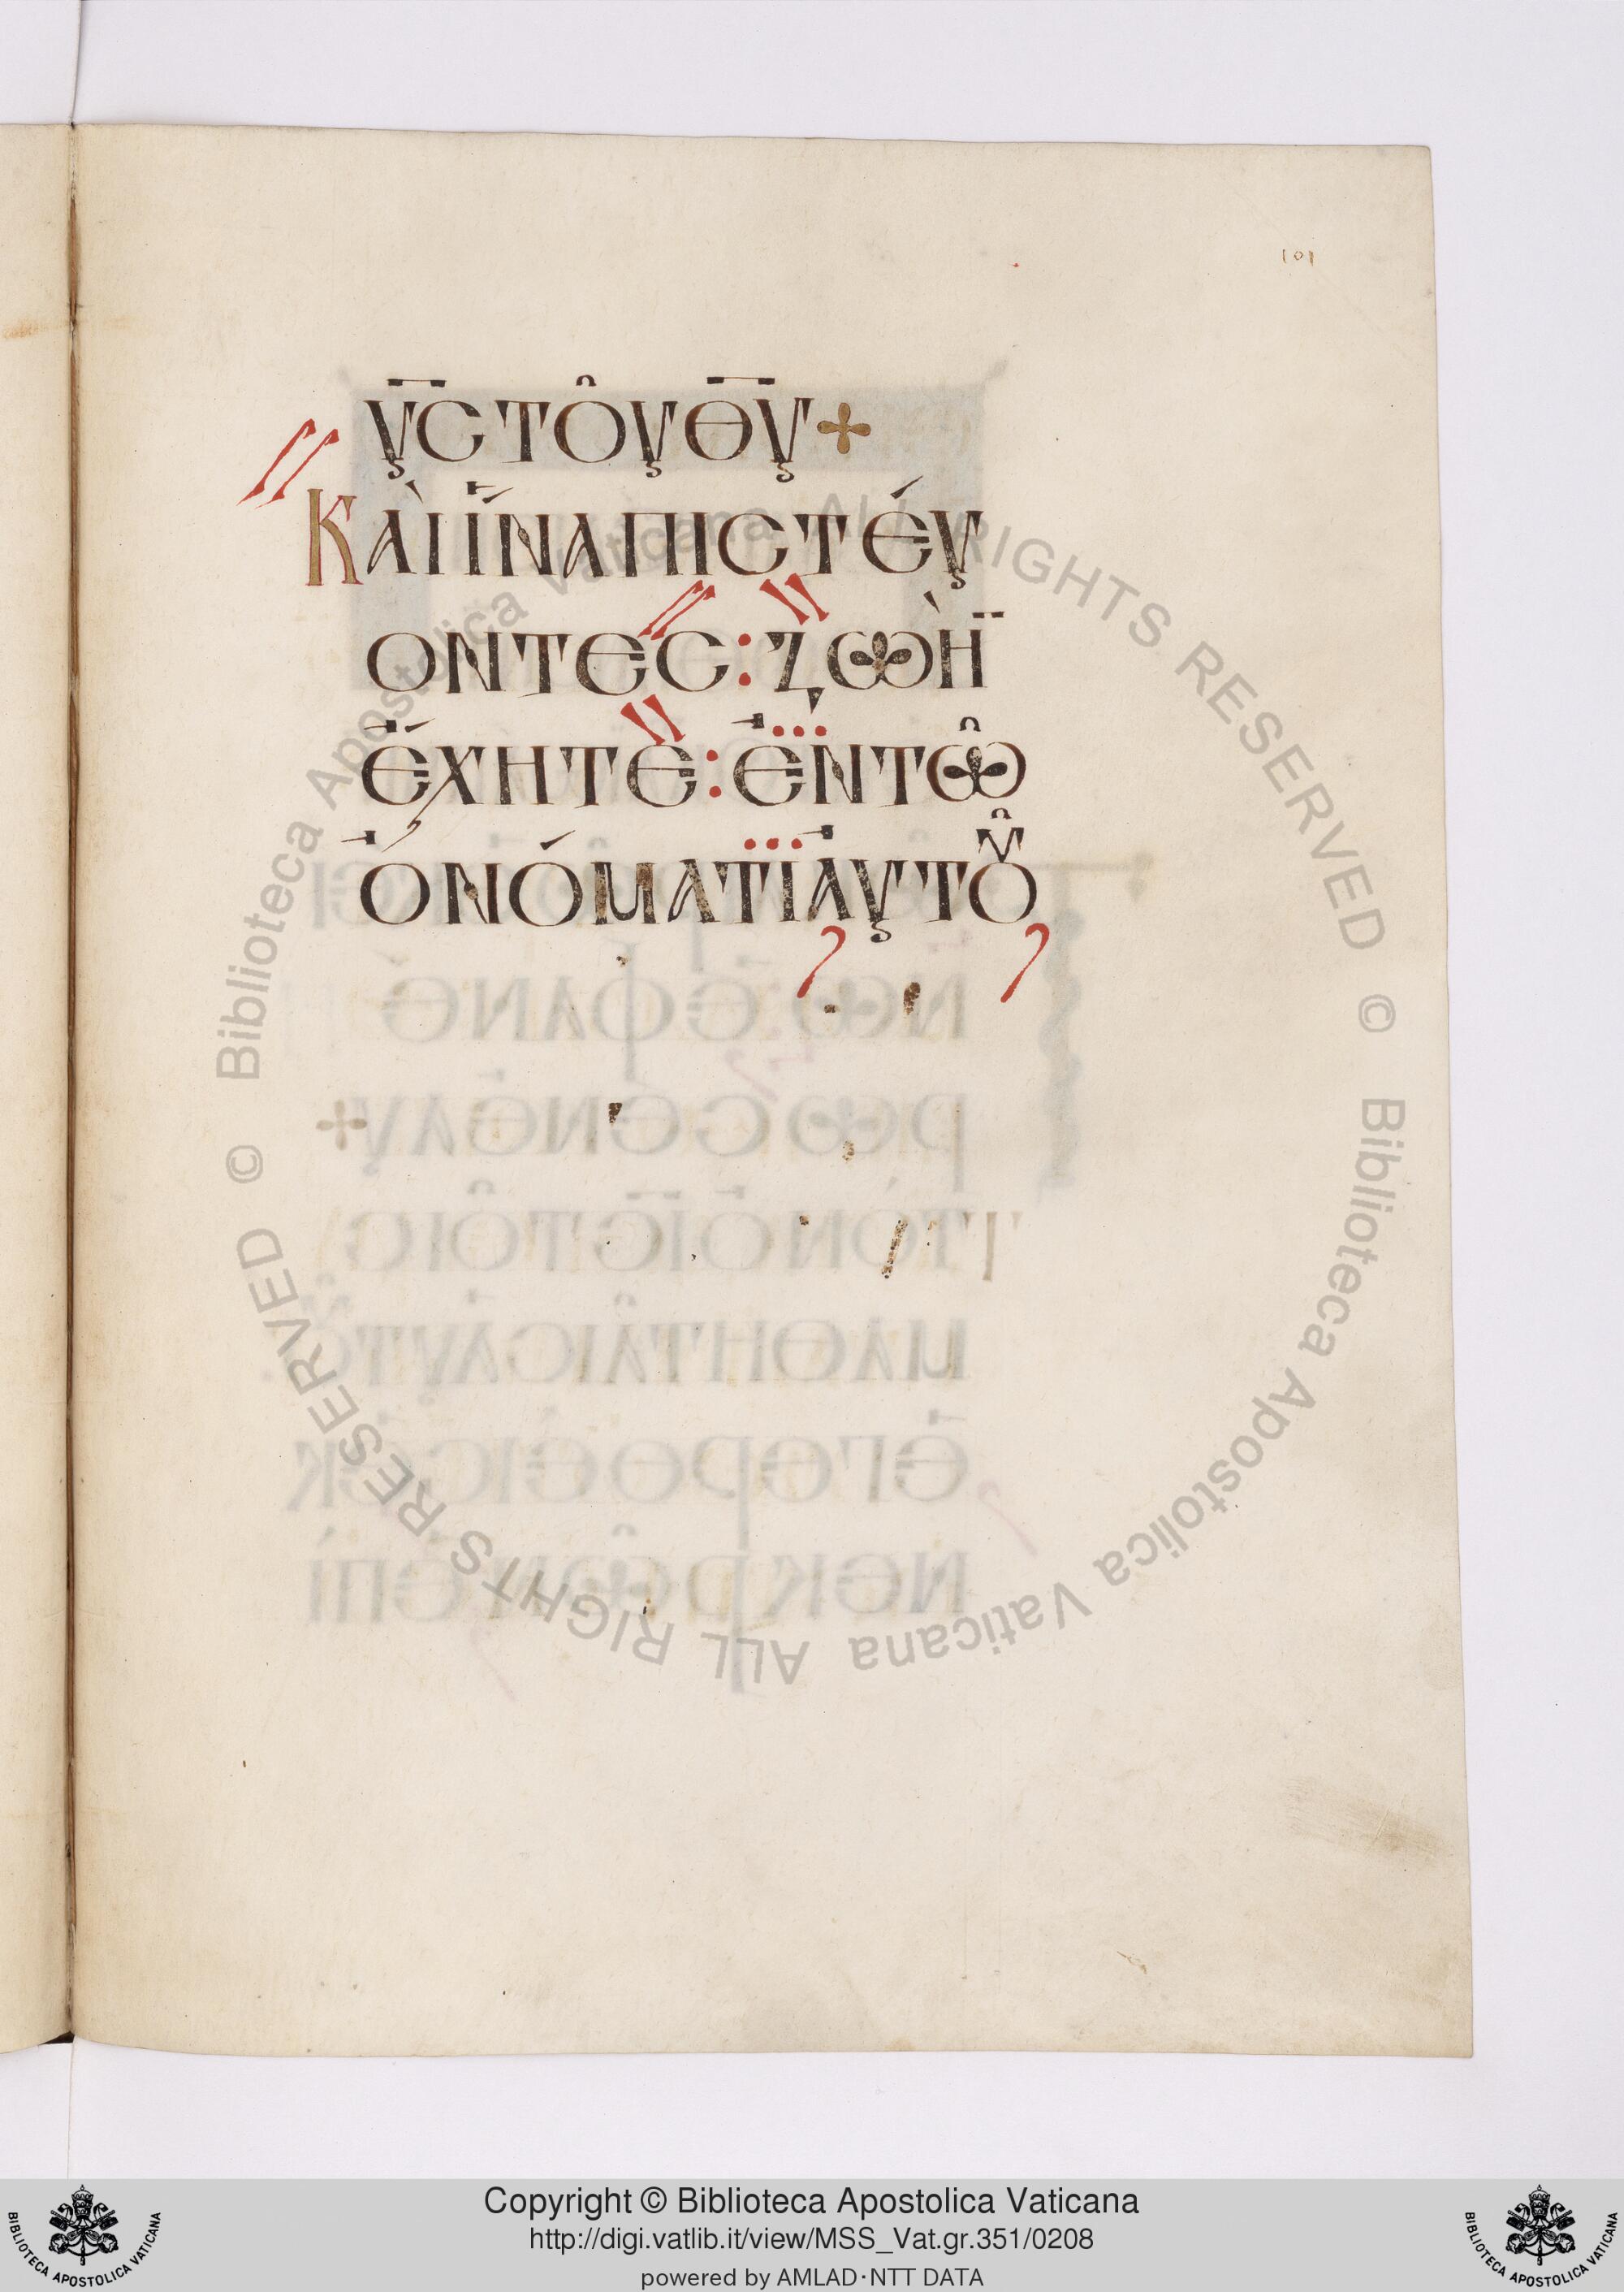 101
ΥϹ ΤΟΥ͂ ΘΥ +
ΚΑῚ ἽΝΑ ΠΙϹΤΕΎ
ΟΝΤΕϹ : ΖΩῊ
ἜΧΗΤΕ : ἘΝ ΤΩ͂
ὈΝΌΜΑΤΙ ΑΥ̓ΤΟΥ͂
Biblioteca Apostolica Vaticana ALL RIGHTS RESERVED ©
Biblioteca Apostolica Vaticana ALL RIGHTS RESERVED ©
Copyright © Biblioteca Apostolica Vaticana
http://digi.vatlib.it/view/MSS_Vat.gr.351/0208
powered by AMLAD·NTT DATA
BIBLIOTECA APOSTOLICA VATICANA
BIBLIOTECA APOSTOLICA VATICANA